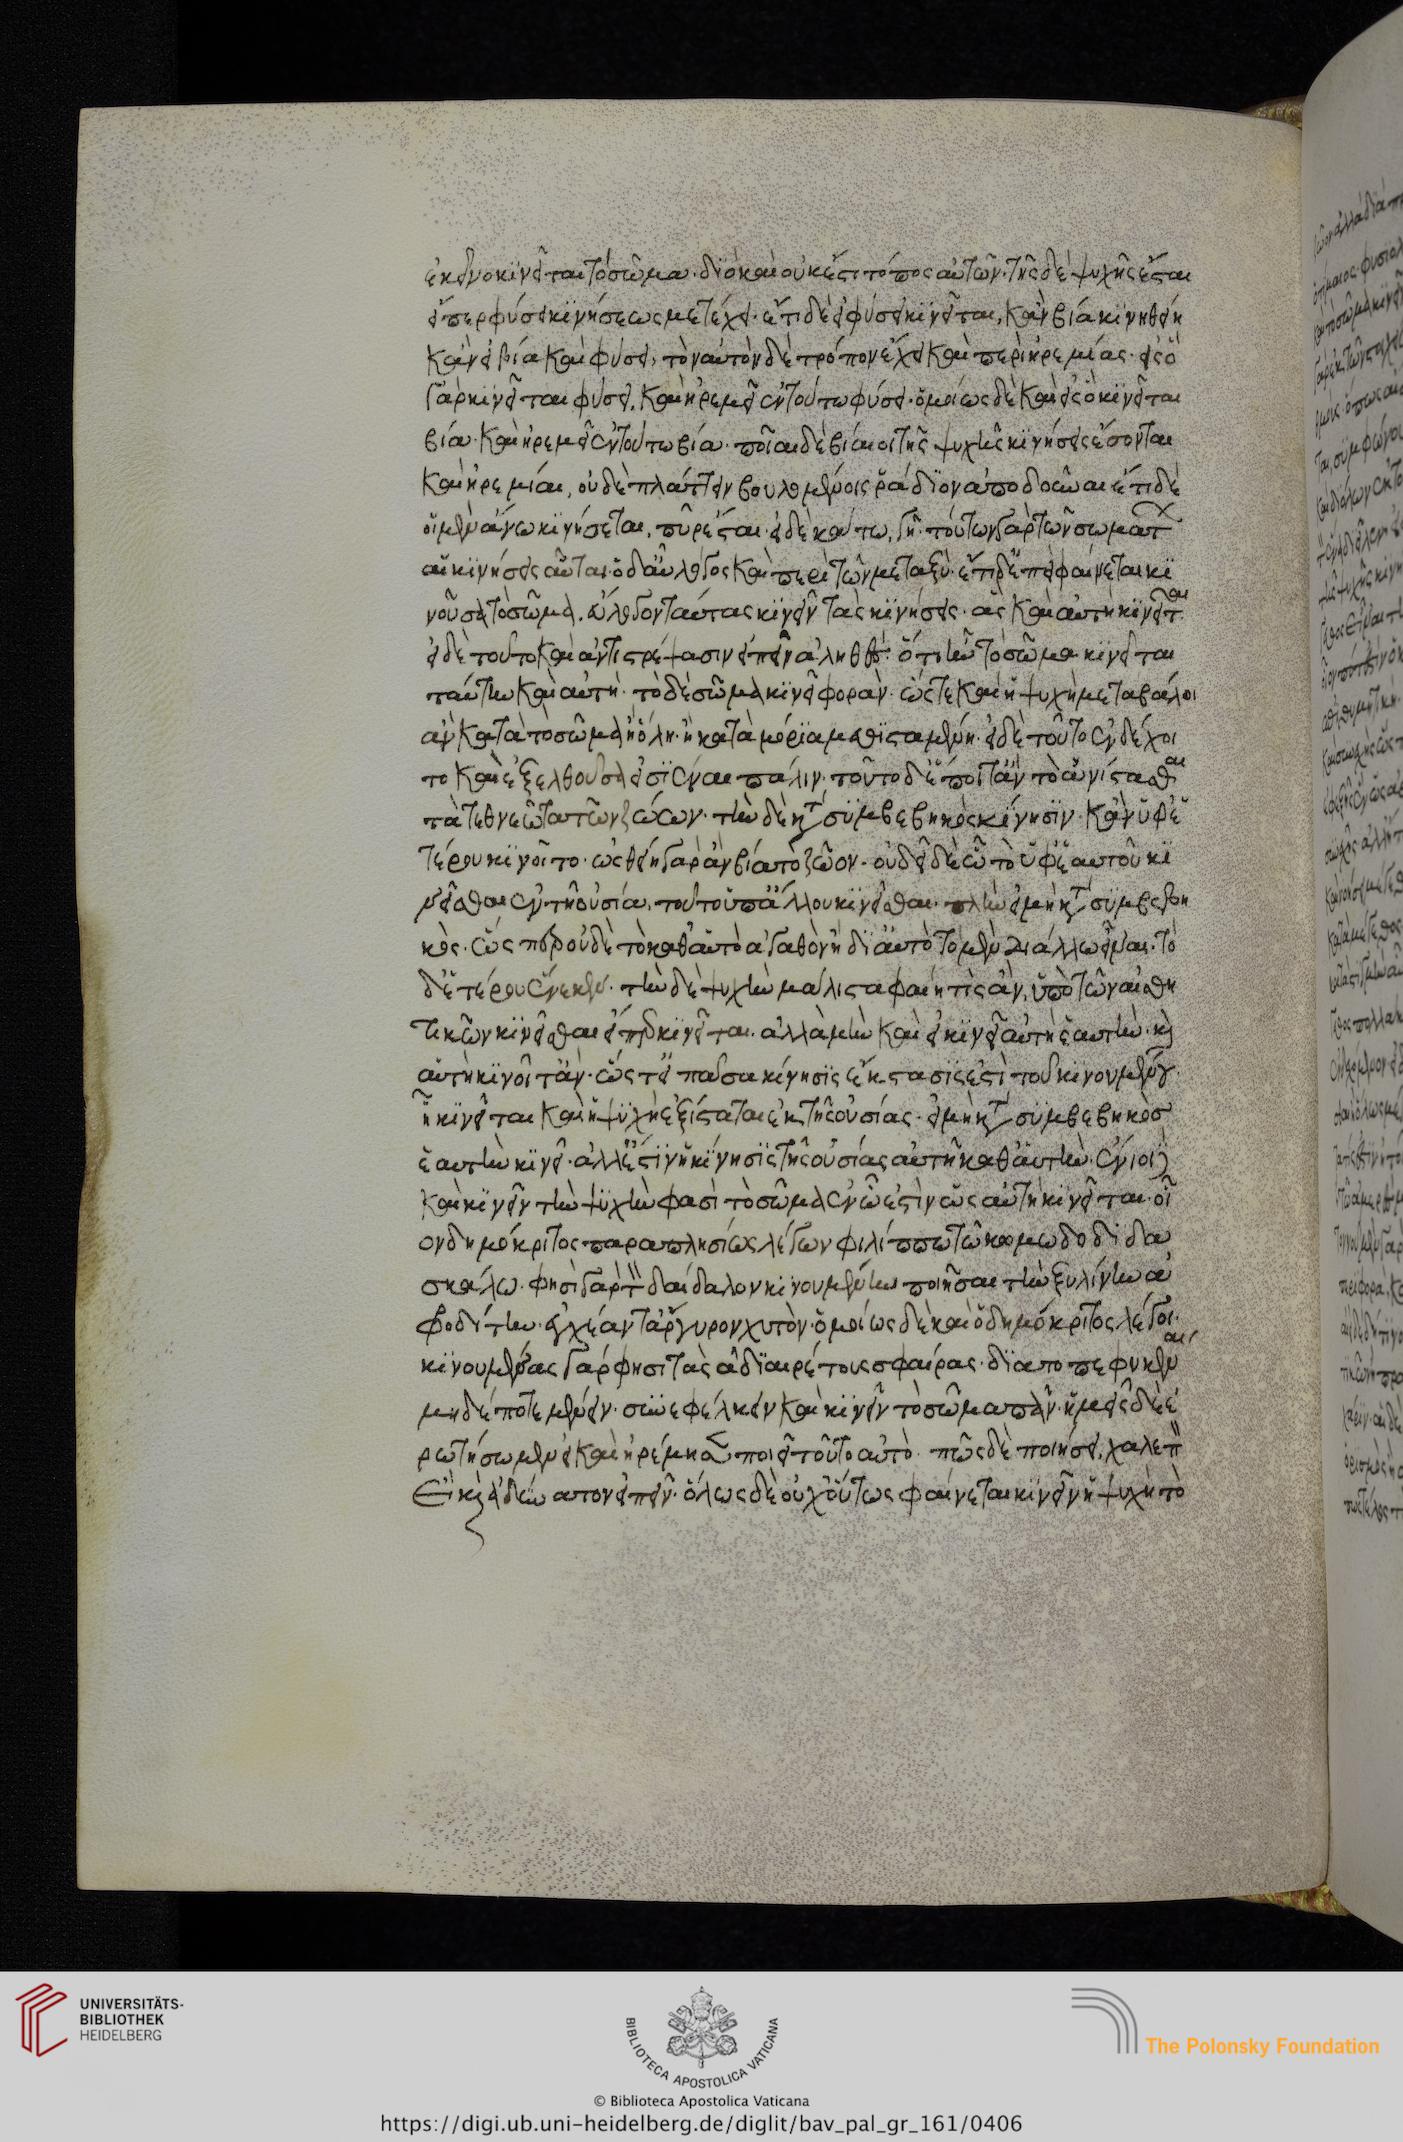 ἐκεῖνο κινεῖται τὸ σῶμα. διὸ καὶ οὐκ ἔστι τόπος αὐτῶν. τῆς δὲ ψυχῆς ἔσται
εἴπερ φύσει κινήσεως μετέχει. ἔτι δ' εἰ φύσει κινεῖται, κἂν βία κινηθείη
κἂν εἰ βία καὶ φύσει, τὸν αὐτὸν δὲ τρόπον ἔχει καὶ περὶ ἠρεμίας. εἰς ὃ
γὰρ κινεῖται φύσει, καὶ ἠρεμεῖ ἐν τούτω φύσει. ὁμοίως δὲ καὶ εἰς ὃ κινεῖται
βία. καὶ ἠρεμεῖ ἐν τούτω βία. ποῖαι δὲ βίαιοι τῆς ψυχῆς κινήσεις ἔσονται
καὶ ἠρεμίαι, οὐδὲ πλάττειν βουλομένοις ῥάδιον ἀποδοῦναι ἔτι δὲ
εἰ μὲν ἄνω κινήσεται, πῦρ ἔσται. εἰ δὲ κάτω, γῆ. τούτων γὰρ τῶν σωμάτ
αἱ κινήσεις αὗται. ὁ δ' αὐτὸς λόγος καὶ περὶ τῶν μεταξύ. ἔτι δ' ἐπεὶ φαίνεται κι
νοῦσα τὸ σῶμα. εὔλογον ταύτας κινεῖν τὰς κινήσεις. ἃς καὶ αὐτὴ κινεῖται.
εἰ δὲ τοῦτο καὶ ἀντιστρέψασιν εἰπεῖν ἀληθὲς ὅτι ἣν τὸ σῶμα κινεῖται
ταύτην καὶ αὐτή. τὸ δὲ σῶμα κινεῖ φορᾶν. ὥστε καὶ ἡ ψυχὴ μεταβάλοι
ἂν κατὰ τὸ σῶμα ἢ ὅλη. ἢ κατὰ μόρια μεθισταμένη. εἰ δὲ τοῦτο ἐνδέχοι
το καὶ ἐξελθοῦσα εἰσιέναι πάλιν. τοῦτο δ' ἕποιτ' ἂν τὸ ἀνίστασθαι
τὰ τεθνεῶτα τῶν ζώων. τὴν δὲ κατὰ συμβεβηκὸς κίνησιν. κἂν ὑφ' ἑ
τέρου κινοῖτο. ὠσθείη γὰρ ἂν βία τὸ ζῶον. οὐ δεῖ δὲ ὧ τὸ ὑφ' ἑαυτοῦ κι
νεῖσθαι ἐν τῆ οὐσία, τοῦτο ὑπ' ἄλλου κινεῖσθαι. πλὴν εἰ μὴ κατὰ συμβεβη
κός. ὥσπερ οὐδὲ τὸ καθ' αὑτὸ ἀγαθὸν ἢ δι' αὑτὸ τὸ μὲν δι' ἄλλο εἶναι. τὸ
δ' ἑτέρου ἕνεκεν. τὴν δὲ ψυχὴν μάλιστα φαίη τις ἂν, ὑπὸ τῶν αἰσθη
τικῶν κινεῖσθαι εἴπερ κινεῖται. ἀλλὰ μὴν καὶ εἰ κινεῖ αὐτὴ ἑαυτὴν. καὶ
αὐτὴ κινοῖτ' ἄν. ὥστ' εἰ πᾶσα κίνησις ἔκστασίς ἐστι τοῦ κινουμένου.
ἧ κινεῖται καὶ ἡ ψυχὴ ἐξίσταται ἐκ τῆς οὐσίας. εἰ μὴ κατὰ συμβεβηκὸς
ἑαυτὴν κινεῖ. ἀλλ' ἔστιν ἡ κίνησις τῆς οὐσίας αὐτῆς καθ' αὑτήν. ἔνιοι
καὶ κινεῖν τὴν ψυχὴν φασὶ τὸ σῶμα ἐν ὧ ἐστὶν ὡς αὐτὴ κινεῖται. οἷ
ον δημόκριτος παραπλησίως λέγων φιλίππω τῶ κωμωδοδιδα
σκάλω. φησὶ γὰρ τὸν δαίδαλον κινουμένην ποιῆσαι τὴν ξυλίνην ἀ
φροδίτην. ἐγχέαντ' ἄργυρον χυτόν. ὁμοίως δὲ καὶ ὁ δημόκριτος λέγει.
κινουμένας γάρ φησι τὰς ἀδιαιρέτους σφαίρας. διὰ τὸ πεφυκέναι
μηδέποτε μένειν. συνεφέλκειν καὶ κινεῖν τὸ σῶμα πᾶν. ἡμεῖς δὲ ἐ
ρωτήσωμεν εἰ καὶ ἠρέμησιν ποιεῖ τοῦτο αὐτό. πῶς δὲ ποιήσει, χαλεπὸν
Εἰ καὶ ἀδύνατον εἰπεῖν. ὅλως δὲ οὐχ οὕτως φαίνεται κινεῖν ἡ ψυχὴ τὸ
UNIVERSITÄTS-
BIBLIOTHEK
HEIDELBERG
BIBLIOTECA APOSTOLICA VATICANA
The Polonsky Foundation
© Biblioteca Apostolica Vaticana
https://digi.ub.uni-heidelberg.de/diglit/bav_pal_gr_161/0406